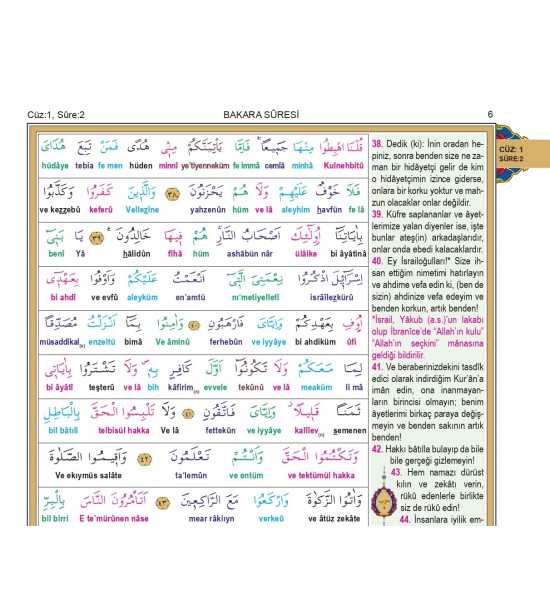 Cüz:1, Sûre:2 BAKARA SÛRESİ 6
CÜZ: 1
SÛRE:2
قُلْنَا اهْبِطُوا مِنْهَا جَمِيعًا فَاِمَّا يَأْتِيَنَّكُمْ مِنّٖى هُدًى فَمَنْ تَبِعَ هُدَاىَ
Kulnehbitû minhâ cemîâ fe immâ ye'tiyenneküm minnî hüden fe men tebia hüdâye
فَلَا خَوْفٌ عَلَيْهِمْ وَلَا هُمْ يَحْزَنُونَ ﴿٣٨﴾ وَالَّذٖينَ كَفَرُوا وَكَذَّبُوا
fe lâ ḣavfün aleyhim ve lâ hüm yahzenûn Vellezîne keferû ve keẕẕebû
بِاٰيَاتِنَا اُولٰئِكَ اَصْحَابُ النَّارِ هُمْ فٖيهَا خَالِدُونَ ﴿٣٩﴾ يَا بَنٖى
bi âyâtinâ ülâike ashâbün nâr hüm fîhâ ḣâlidûn Yâ benî
اِسْرَائٖلَ اذْكُرُوا نِعْمَتِىَ الَّتٖى اَنْعَمْتُ عَلَيْكُمْ وَاَوْفُوا بِعَهْدٖى
isrâîleẕkürû nı'metiyelletî en'amtü aleyküm ve evfû bi ahdî
اُوفِ بِعَهْدِكُمْ وَاِيَّاىَ فَارْهَبُونِ ﴿٤٠﴾ وَاٰمِنُوا بِمَا اَنْزَلْتُ مُصَدِّقًا
ûfi bi ahdiküm ve iyyâye ferhebûn Ve âminû bimâ enzeltü müsaddikal(n)
لِمَا مَعَكُمْ وَلَا تَكُونُوا اَوَّلَ كَافِرٍ بِهٖ وَلَا تَشْتَرُوا بِاٰيَاتٖى
li mâ meaküm ve lâ tekûnû evvele kâfirim(n) bîh ve lâ teşterû bi âyâtî
ثَمَنًا قَلٖيلًا وَاِيَّاىَ فَاتَّقُونِ ﴿٤١﴾ وَلَا تَلْبِسُوا الْحَقَّ بِالْبَاطِلِ
semenen kalîlev(n) ve iyyâye fettekûn Ve lâ telbisül hakka bil bâtıli
وَتَكْتُمُوا الْحَقَّ وَاَنْتُمْ تَعْلَمُونَ ﴿٤٢﴾ وَاَقٖيمُوا الصَّلٰوةَ
ve tektümül hakka ve entüm ta'lemûn Ve ekıymüs salâte
وَاٰتُوا الزَّكٰوةَ وَارْكَعُوا مَعَ الرَّاكِعٖينَ ﴿٤٣﴾ اَتَأْمُرُونَ النَّاسَ بِالْبِرِّ
ve âtüz zekâte verkeû mear râkiıyn E te'mürûnen nâse bil birri
38. Dedik (ki): İnin oradan he-
piniz, sonra benden size ne za-
man bir hidâyetçi gelir de kim
o hidâyetçimin izince giderse,
onlara bir korku yoktur ve mah-
zun olacaklar onlar değildir.
39. Küfre saplananlar ve âyet-
lerimize yalan diyenler ise, işte
bunlar ateş(in) arkadaşlarıdır,
onlar onda ebedî kalacaklardır.
40. Ey İsrailoğulları!* Size ih-
san ettiğim nimetimi hatırlayın
ve ahdime vefa edin ki, (ben de
sizin) ahdinize vefa edeyim ve
benden korkun, artık benden!
*İsrail, Yâkub (a.s.)'un lakabı
olup İbranice'de "Allah'ın kulu"
"Allah'ın seçkini" mânasına
geldiği bildirilir.
41. Ve beraberinizdekini tasdik
edici olarak indirdiğim Kur'ân'a
imân edin, ona inanmayan-
ların birincisi olmayın; benim
âyetlerimi birkaç paraya değiş-
meyin ve benden sakının artık
benden!
42. Hakkı bâtılla bulayıp da bile
bile gerçeği gizlemeyin!
43. Hem namazı dürüst
kılın ve zekâtı verin,
rükû edenlerle birlikte
siz de rükû edin!
44. İnsanlara iyilik em-